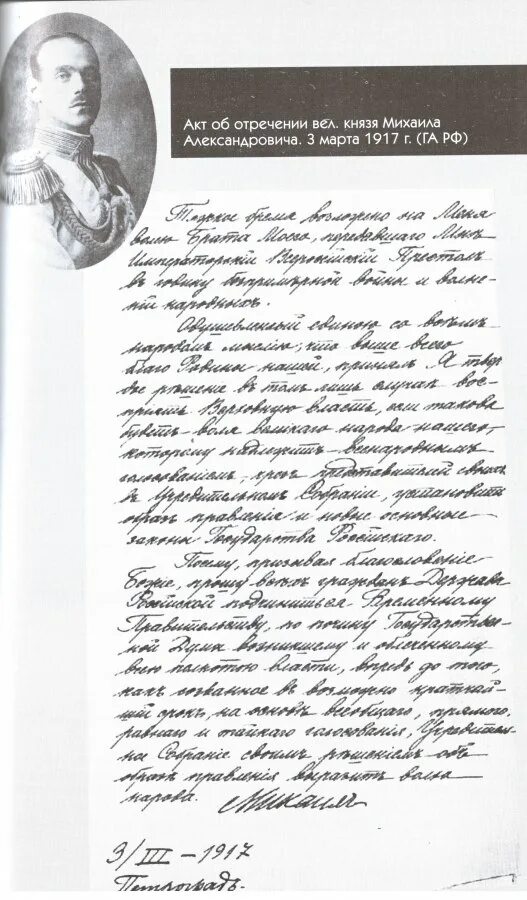 Акт об отречении вел. князя Михаила
Александровича. 3 марта 1917 г. (ГА РФ)
Тяжкое бремя возложено на Меня
волею Брата Моего, передавшаго Мнѣ
Императорскій Всероссійскій Престолъ
въ годину безпримѣрной войны и волне-
ній народныхъ.
Одушевленный единою со всѣмъ
народомъ мыслію, что выше всего
благо Родины нашей, принялъ Я твер-
дое рѣшеніе въ томъ лишь случаѣ вос-
пріять Верховную власть, если такова
будетъ воля великаго народа нашего,
которому надлежитъ всенароднымъ
голосованіемъ, чрезъ представителей своихъ
въ Учредительномъ Собраніи, установить
образъ правленія и новые основные
законы Государства Россійскаго.
Посему, призывая благословеніе
Божіе, прошу всѣхъ гражданъ Державы
Россійской подчиниться Временному
Правительству, по почину Государствен-
ной Думы возникшему и облеченному
всею полнотою власти, впредь до того,
какъ созванное въ возможно кратчай-
шій срокъ, на основѣ всеобщаго, прямого,
равнаго и тайнаго голосованія, Учредитель-
ное Собраніе своимъ рѣшеніемъ объ
образѣ правленія выразитъ волю
народа. Михаилъ
3/III – 1917
Петроградъ.